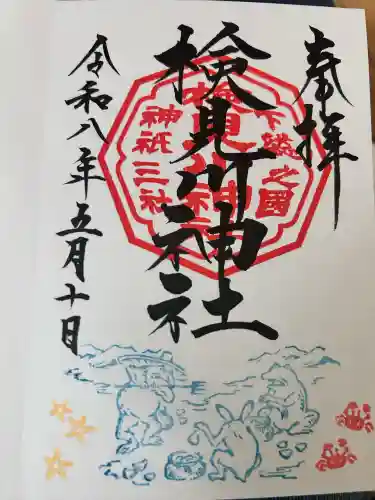 奉拝
検見川神社
下総之國
検見川神社
神祇三社
令和八年五月十日